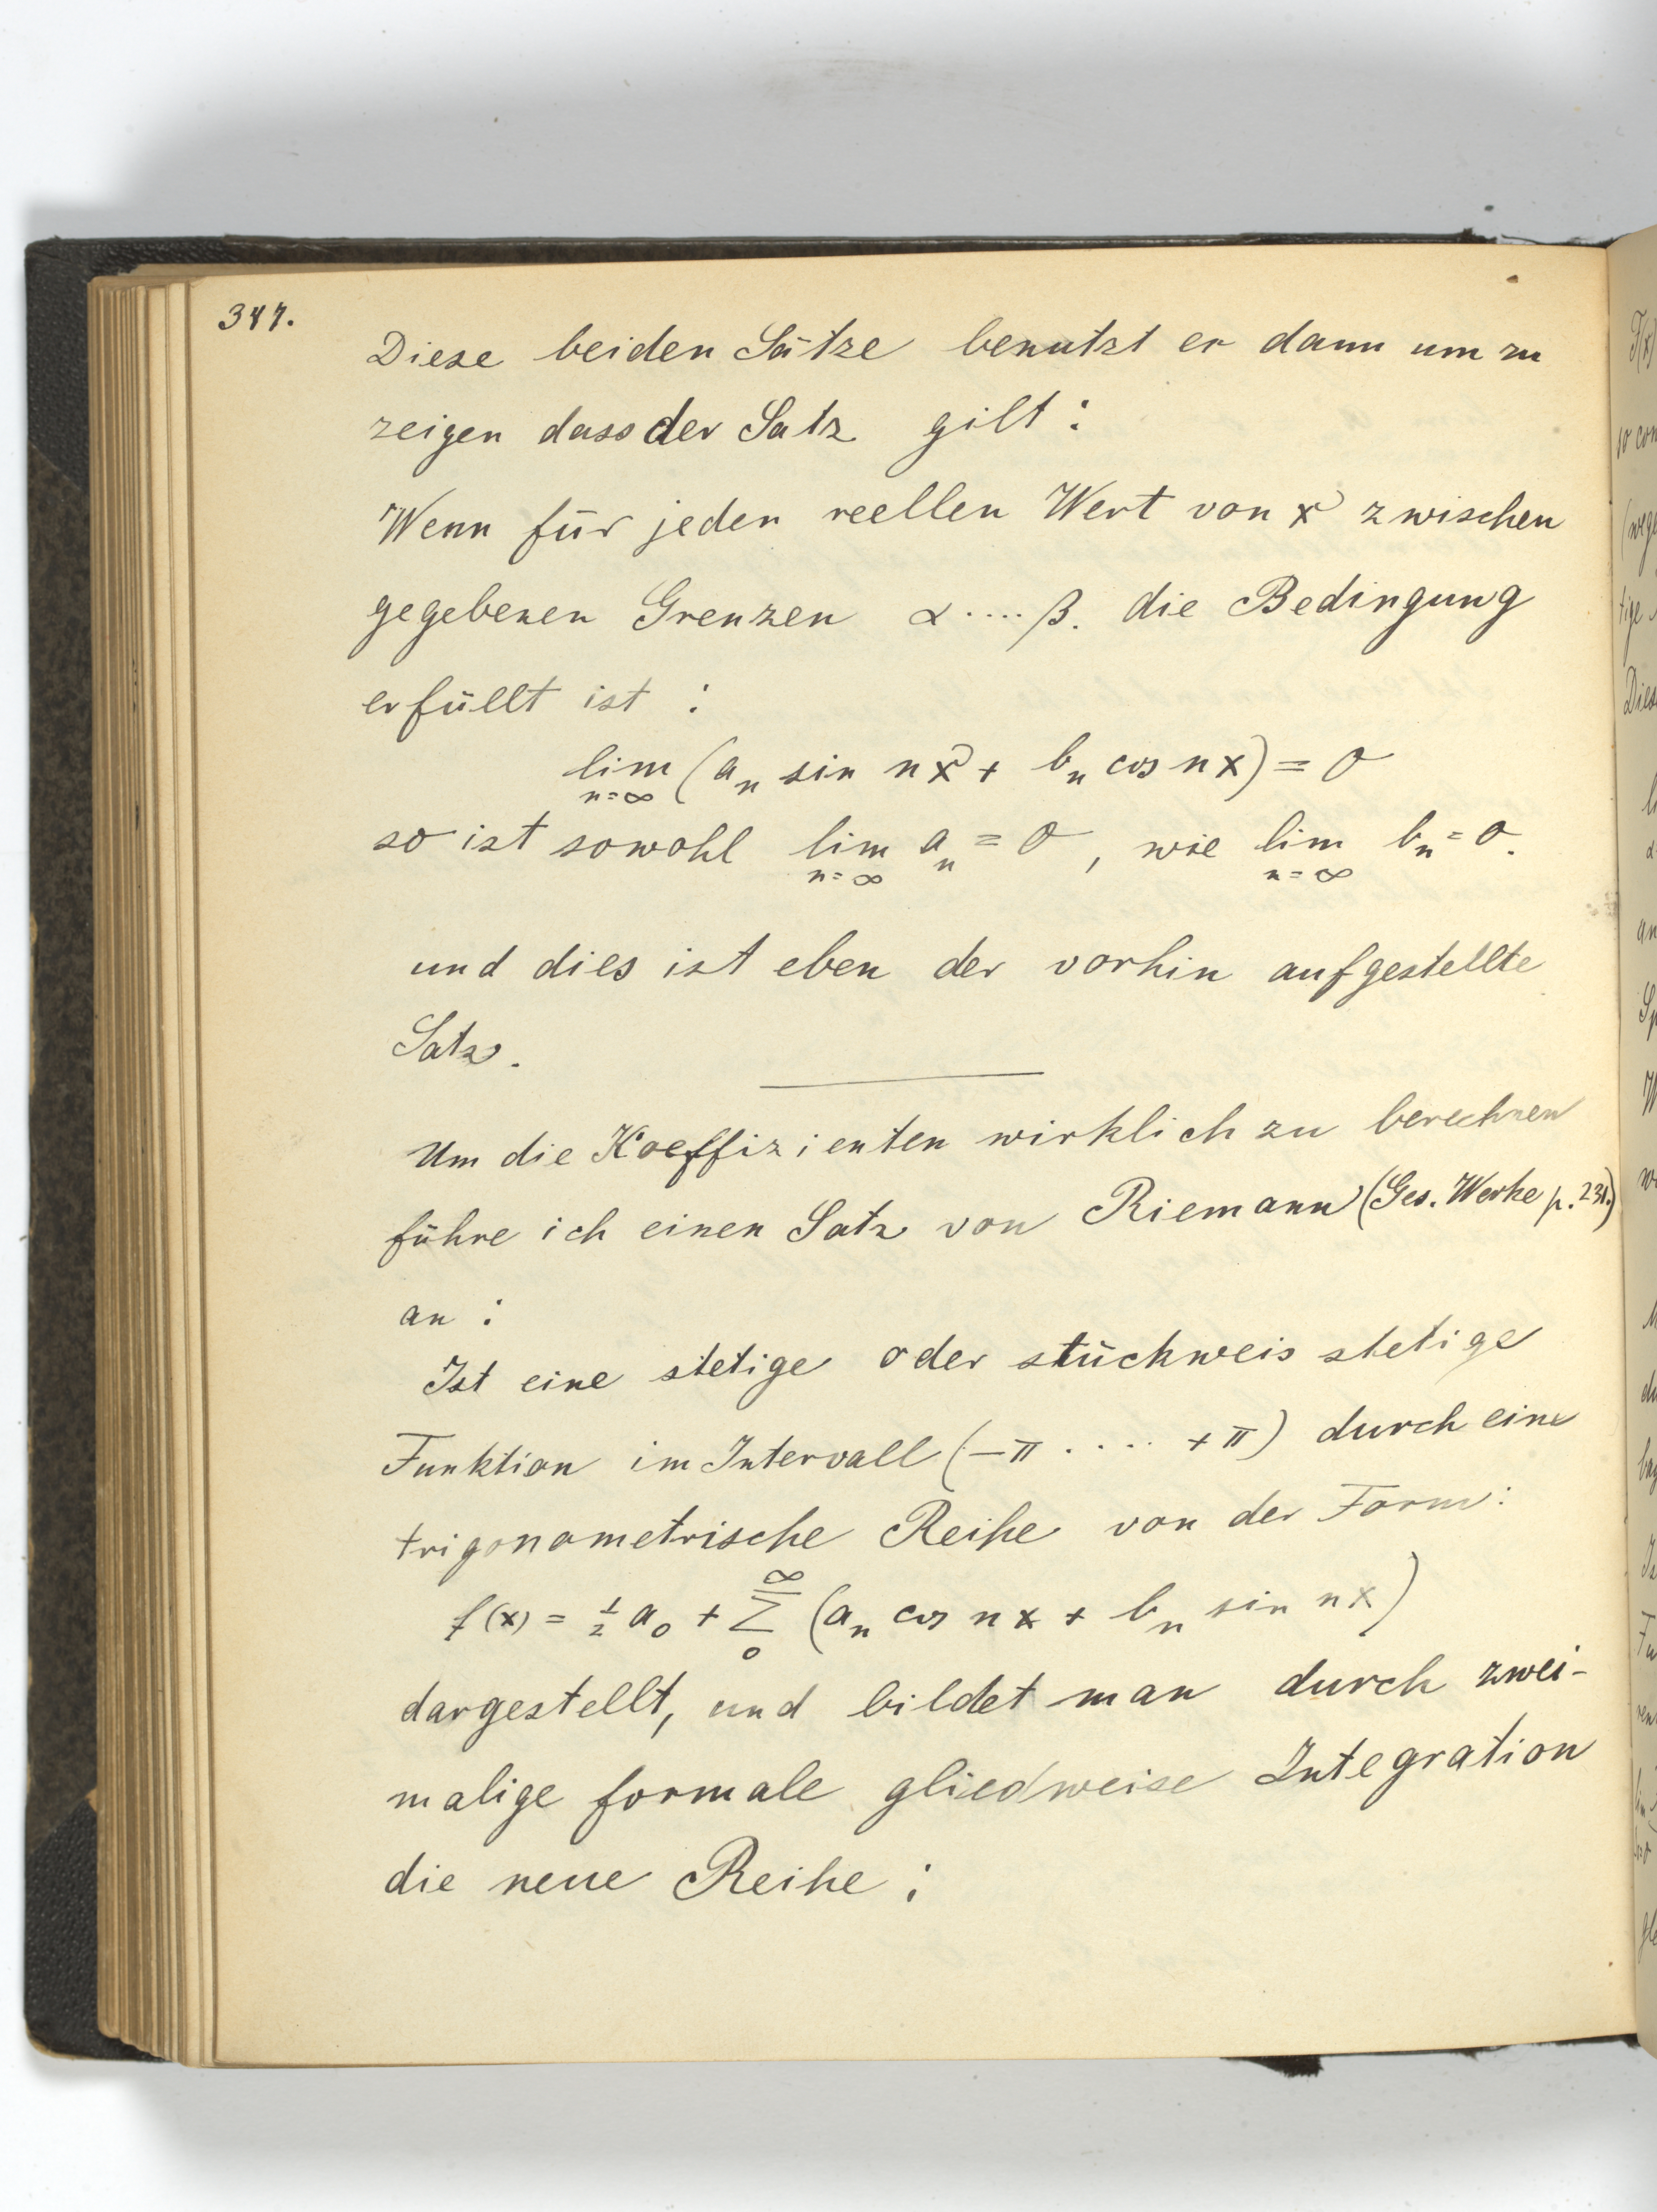 347.
Diese beiden Sätze benutzt er dann um zu
zeigen dass der Satz gilt :
Wenn für jeden reellen Wert von x zwischen
gegebenen Grenzen α .... β. die Bedingung
erfüllt ist :
lim (a_n sin nx + b_n cos nx) = 0
n=∞
so ist sowohl lim a_n = 0, wie lim b_n = 0.
n=∞ n=∞
und dies ist eben der vorhin aufgestellte
Satz.
Um die Koeffizienten wirklich zu berechnen
führe ich einen Satz von Riemann (Ges. Werke p. 231.)
an :
Ist eine stetige oder stückweis stetige
Funktion im Intervall (-π .... +π) durch eine
trigonometrische Reihe von der Form:
f(x) = ½ a₀ + ∑₀^∞ (a_n cos nx + b_n sin nx)
dargestellt, und bildet man durch zwei-
malige formale gliedweise Integration
die neue Reihe :